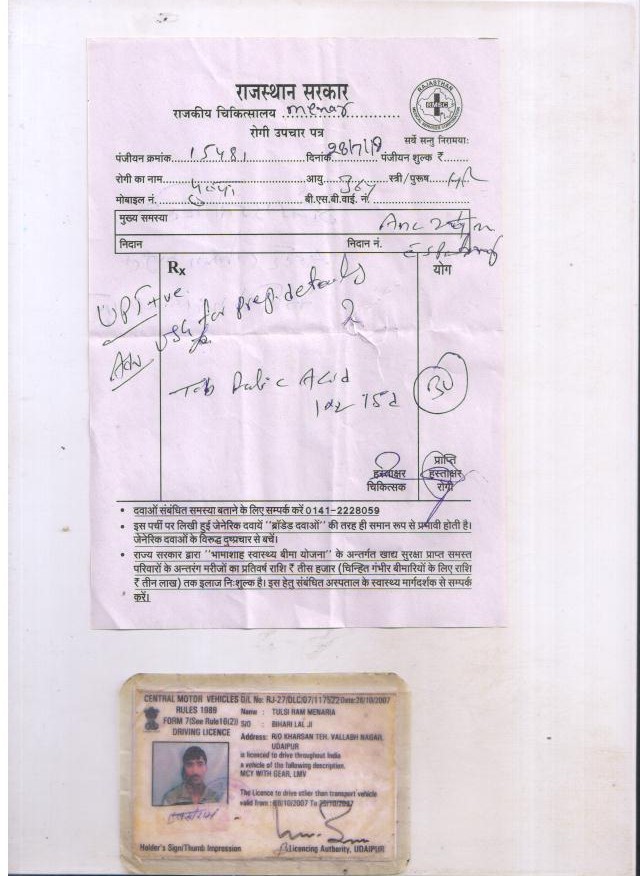 राजस्थान सरकार
राजकीय चिकित्सालय menar
रोगी उपचार पत्र
RAJASTHAN
RMSC
सर्वे सन्तु निरामयाः
पंजीयन क्रमांक 15481 दिनांक 28/7/18 पंजीयन शुल्क ₹
रोगी का नाम आयु 30y स्त्री/पुरूष
मोबाइल नं. बी.एस.बी.वाई. नं.
मुख्य समस्या Anc
निदान निदान नं.
Rx योग
UPT +ve
Adv USG for preg. details
Tab Folic Acid
1od 15d
30
हस्ताक्षर
चिकित्सक
प्राप्ति
हस्ताक्षर
रोगी
• दवाओं संबंधित समस्या बताने के लिए सम्पर्क करें 0141-2228059
• इस पर्ची पर लिखी हुई जेनेरिक दवायें "ब्रॉडेड दवाओं" की तरह ही समान रूप से प्रभावी होती है।
जेनेरिक दवाओं के विरुद्ध दुष्प्रचार से बचें।
• राज्य सरकार द्वारा "भामाशाह स्वास्थ्य बीमा योजना" के अन्तर्गत खाद्य सुरक्षा प्राप्त समस्त
परिवारों के अन्तरंग मरीजों का प्रतिवर्ष राशि ₹ तीस हजार (चिन्हित गंभीर बीमारियों के लिए राशि
₹ तीन लाख) तक इलाज निःशुल्क है। इस हेतु संबंधित अस्पताल के स्वास्थ्य मार्गदर्शक से सम्पर्क
करें।
CENTRAL MOTOR VEHICLES D/L No: RJ-27/DLC/07/117522 Date:26/10/2007
RULES 1989
FORM 7(See Rule16(2))
DRIVING LICENCE
Name : TULSI RAM MENARIA
S/O : BIHARI LAL JI
Address: R/O KHARSAN TEH. VALLABH NAGAR,
UDAIPUR
is licenced to drive throughout India
a vehicle of the following description.
MCY WITH GEAR, LMV
The Licence to drive other than transport vehicle
valid from : /10/2007 To
Holder's Sign/Thumb Impression
Licencing Authority, UDAIPUR